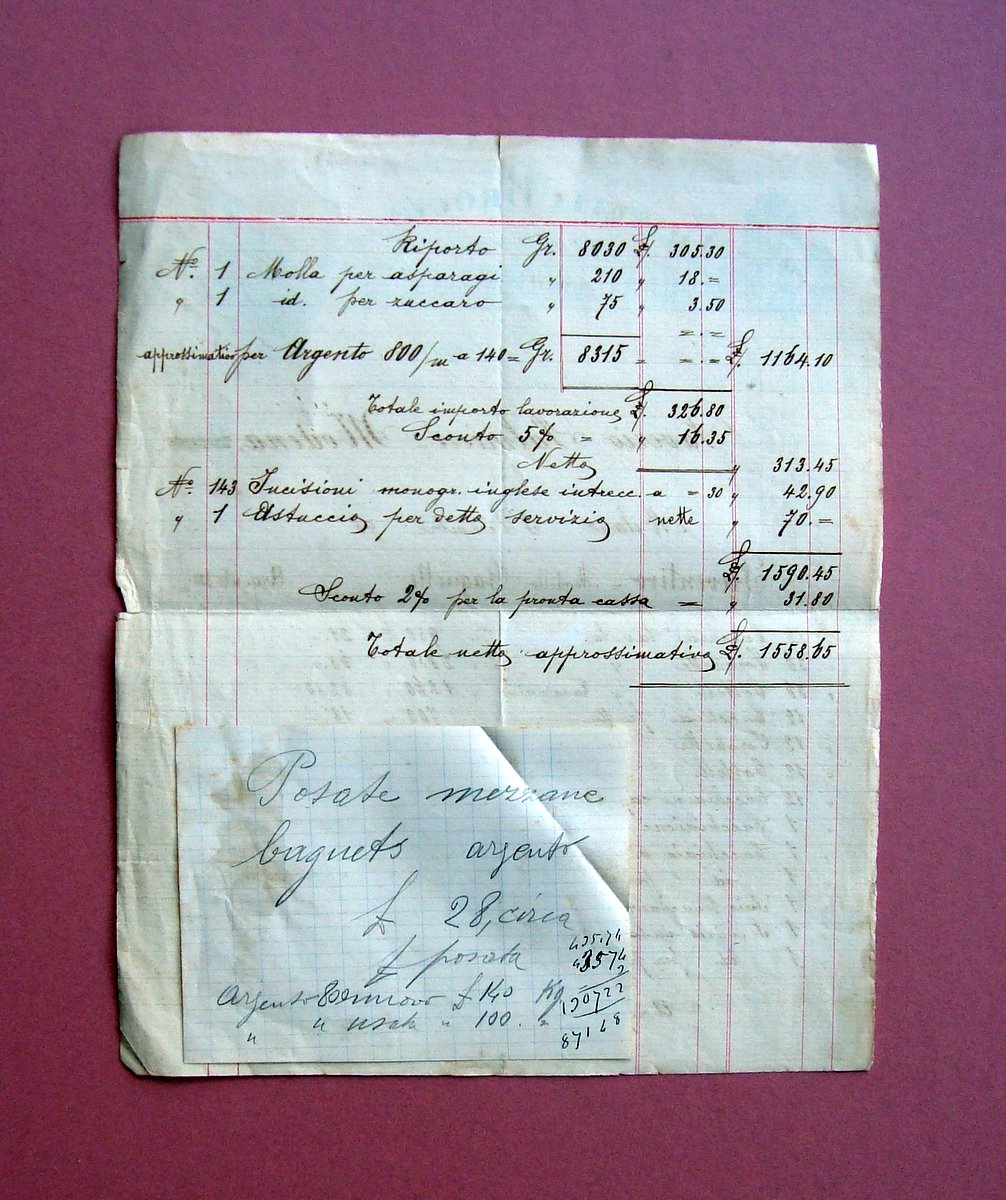 Riporto Gr. 8030 £. 305.30
No. 1 Molla per asparagi " 210 " 18.=
" 1 id. per zuccaro " 75 " 3.50
=.=
approssimativo per Argento 800/m a 140= Gr. 8315 = =.= £. 1164.10
Totale importo lavorazione £. 326.80
Sconto 5% = " 16.35
Netto " 313.45
No. 143 Incisioni monogr. inglese intrecc. a = 30 " 42.90
" 1 Astuccio per detto servizio nette " 70.=
£. 1590.45
Sconto 2% per la pronta cassa = " 31.80
Totale netto approssimativo £. 1558.65
Posate mezzane
baguets argento
£ 28, circa
£ posata
Argento 800 nuovo £ 140 Kg
" " usato " 100. "
43574
43574
3
130722
87148